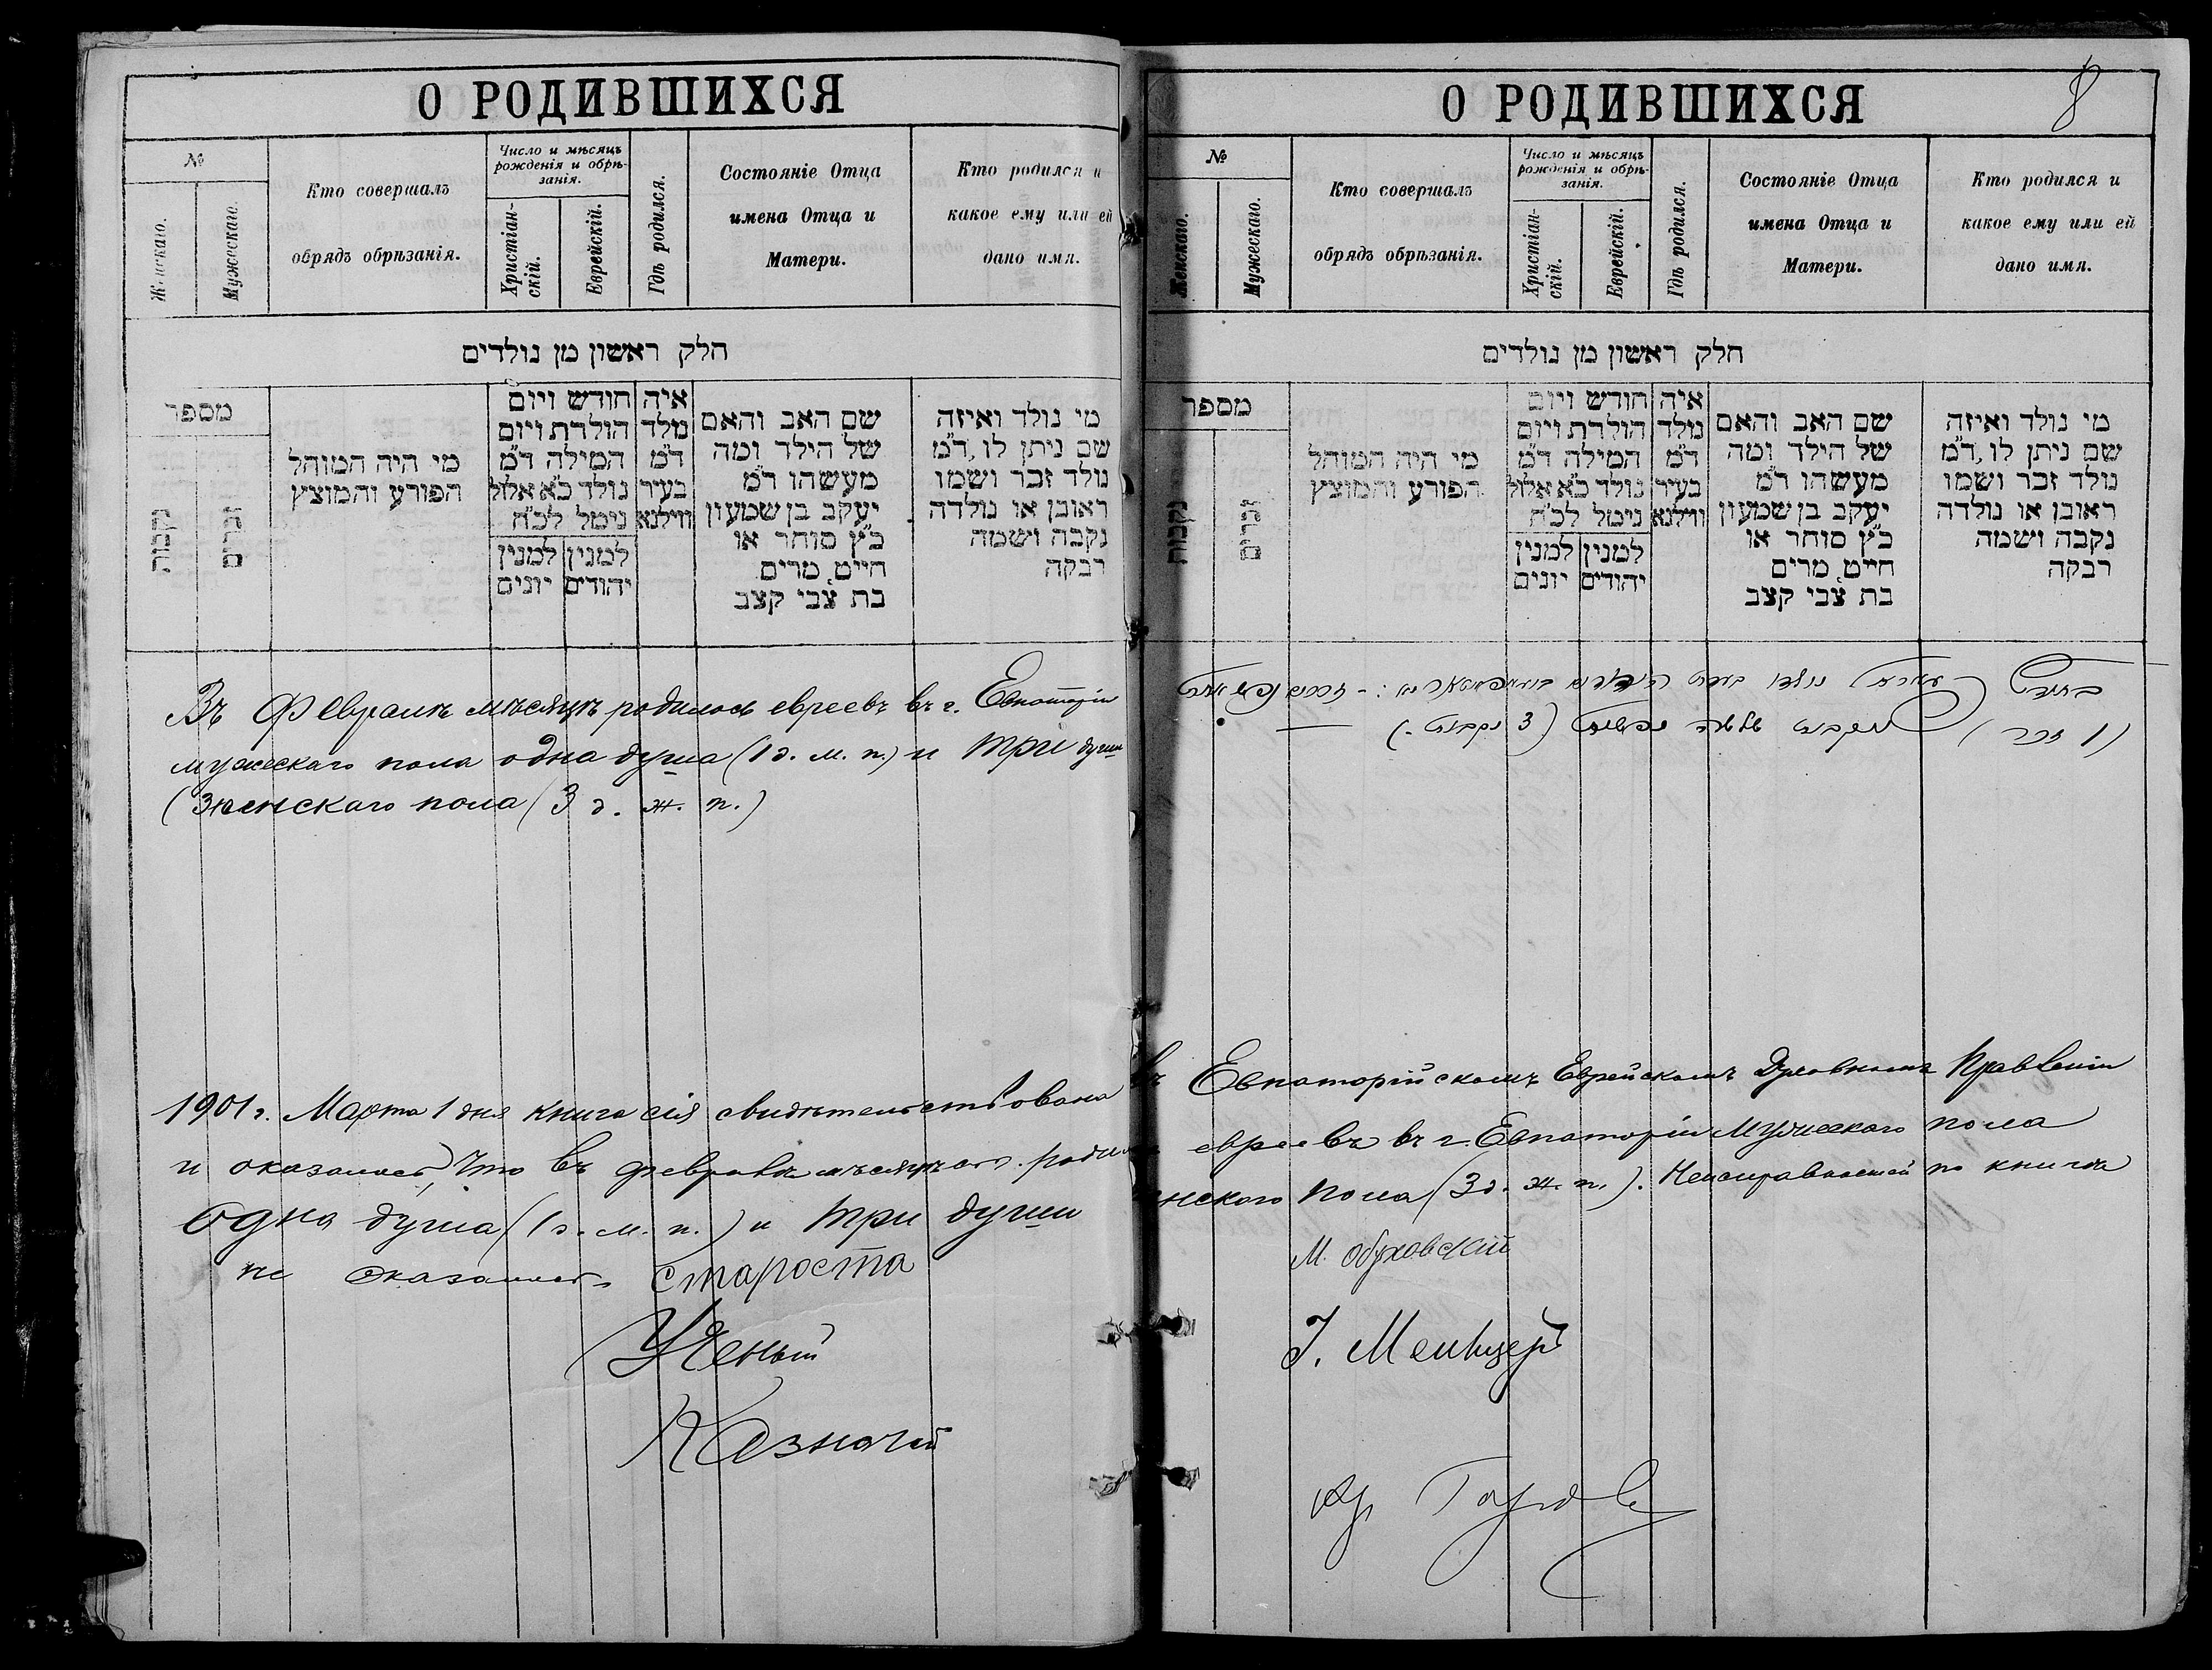 О РОДИВШИХСЯ
№
Женскаго.
Мужескаго.
Кто совершалъ
обрядъ обрѣзанія.
Число и мѣсяцъ
рожденія и обрѣ-
занія.
Христіан-
скій.
Еврейскій.
Гдѣ родился.
Состояніе Отца
имена Отца и
Матери.
Кто родился и
какое ему или ей
дано имя.
חלק ראשון מן נולדים
מספר
נקבות
זכרים
מי היה המוהל
הפורע והמוצץ
חודש ויום
הולדת ויום
המילה ד״מ
נולד כ״א אלול
נימל לכ״ח
למנין
יהודים
למנין
יונים
איה
נולד
ד״מ
בעיר
ווילנא
שם האב והאם
של הילד ומה
מעשהו ד״מ
יעקב בן שמעון
כ״ץ סוחר או
חייט, מרים
בת צבי קצב
מי נולד ואיזה
שם ניתן לו, ד״מ
נולד זכר ושמו
ראובן או נולדה
נקבה ושמה
רבקה
Въ Февралѣ мѣсяцѣ родилось евреевъ въ г. Евпаторіи
мужескаго пола одна душа (1 д. м. п.) и три души
женскаго пола (3 д. ж. п.)
1901 г. Марта 1 дня книга сія свидѣтельствована
и оказалось, что въ февралѣ мѣсяцѣ
одна душа (1 д. м. п.) и три души
не оказалось Староста
Ученый
Казначей
О РОДИВШИХСЯ
8
№
Женскаго.
Мужескаго.
Кто совершалъ
обрядъ обрѣзанія.
Число и мѣсяцъ
рожденія и обрѣ-
занія.
Христіан-
скій.
Еврейскій.
Гдѣ родился.
Состояніе Отца
имена Отца и
Матери.
Кто родился и
какое ему или ей
дано имя.
חלק ראשון מן נולדים
מספר
נקבות
זכרים
מי היה המוהל
הפורע והמוצץ
חודש ויום
הולדת ויום
המילה ד״מ
נולד כ״א אלול
נימל לכ״ח
למנין
יהודים
למנין
יונים
איה
נולד
ד״מ
בעיר
ווילנא
שם האב והאם
של הילד ומה
מעשהו ד״מ
יעקב בן שמעון
כ״ץ סוחר או
חייט, מרים
בת צבי קצב
מי נולד ואיזה
שם ניתן לו, ד״מ
נולד זכר ושמו
ראובן או נולדה
נקבה ושמה
רבקה
נולדו
(1 זכר) שלשה נפשות (3 נקבות)
въ Евпаторійскомъ Еврейскомъ Духовномъ Правленіи
евреевъ въ г. Евпаторіи мужескаго пола
женскаго пола (3 д. ж. п.). Неисправностей по книгѣ
М. Обуховскій
І. Мельцеръ